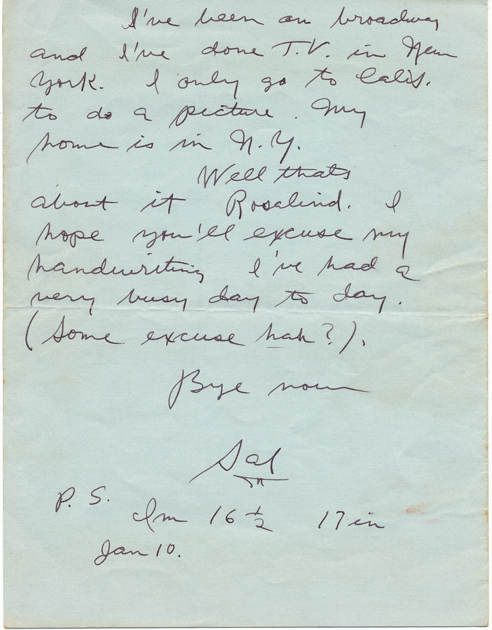 I've been on broadway
and I've done T.V. in New
York. I only go to Calif.
to do a picture. My
home is in N.Y.
Well thats
about it Rosalind. I
hope you'll excuse my
handwriting I've had a
very busy day to day.
(Some excuse hah?).
Bye now
Sal
P.S.
Im 16 1/2 17 in
Jan 10.